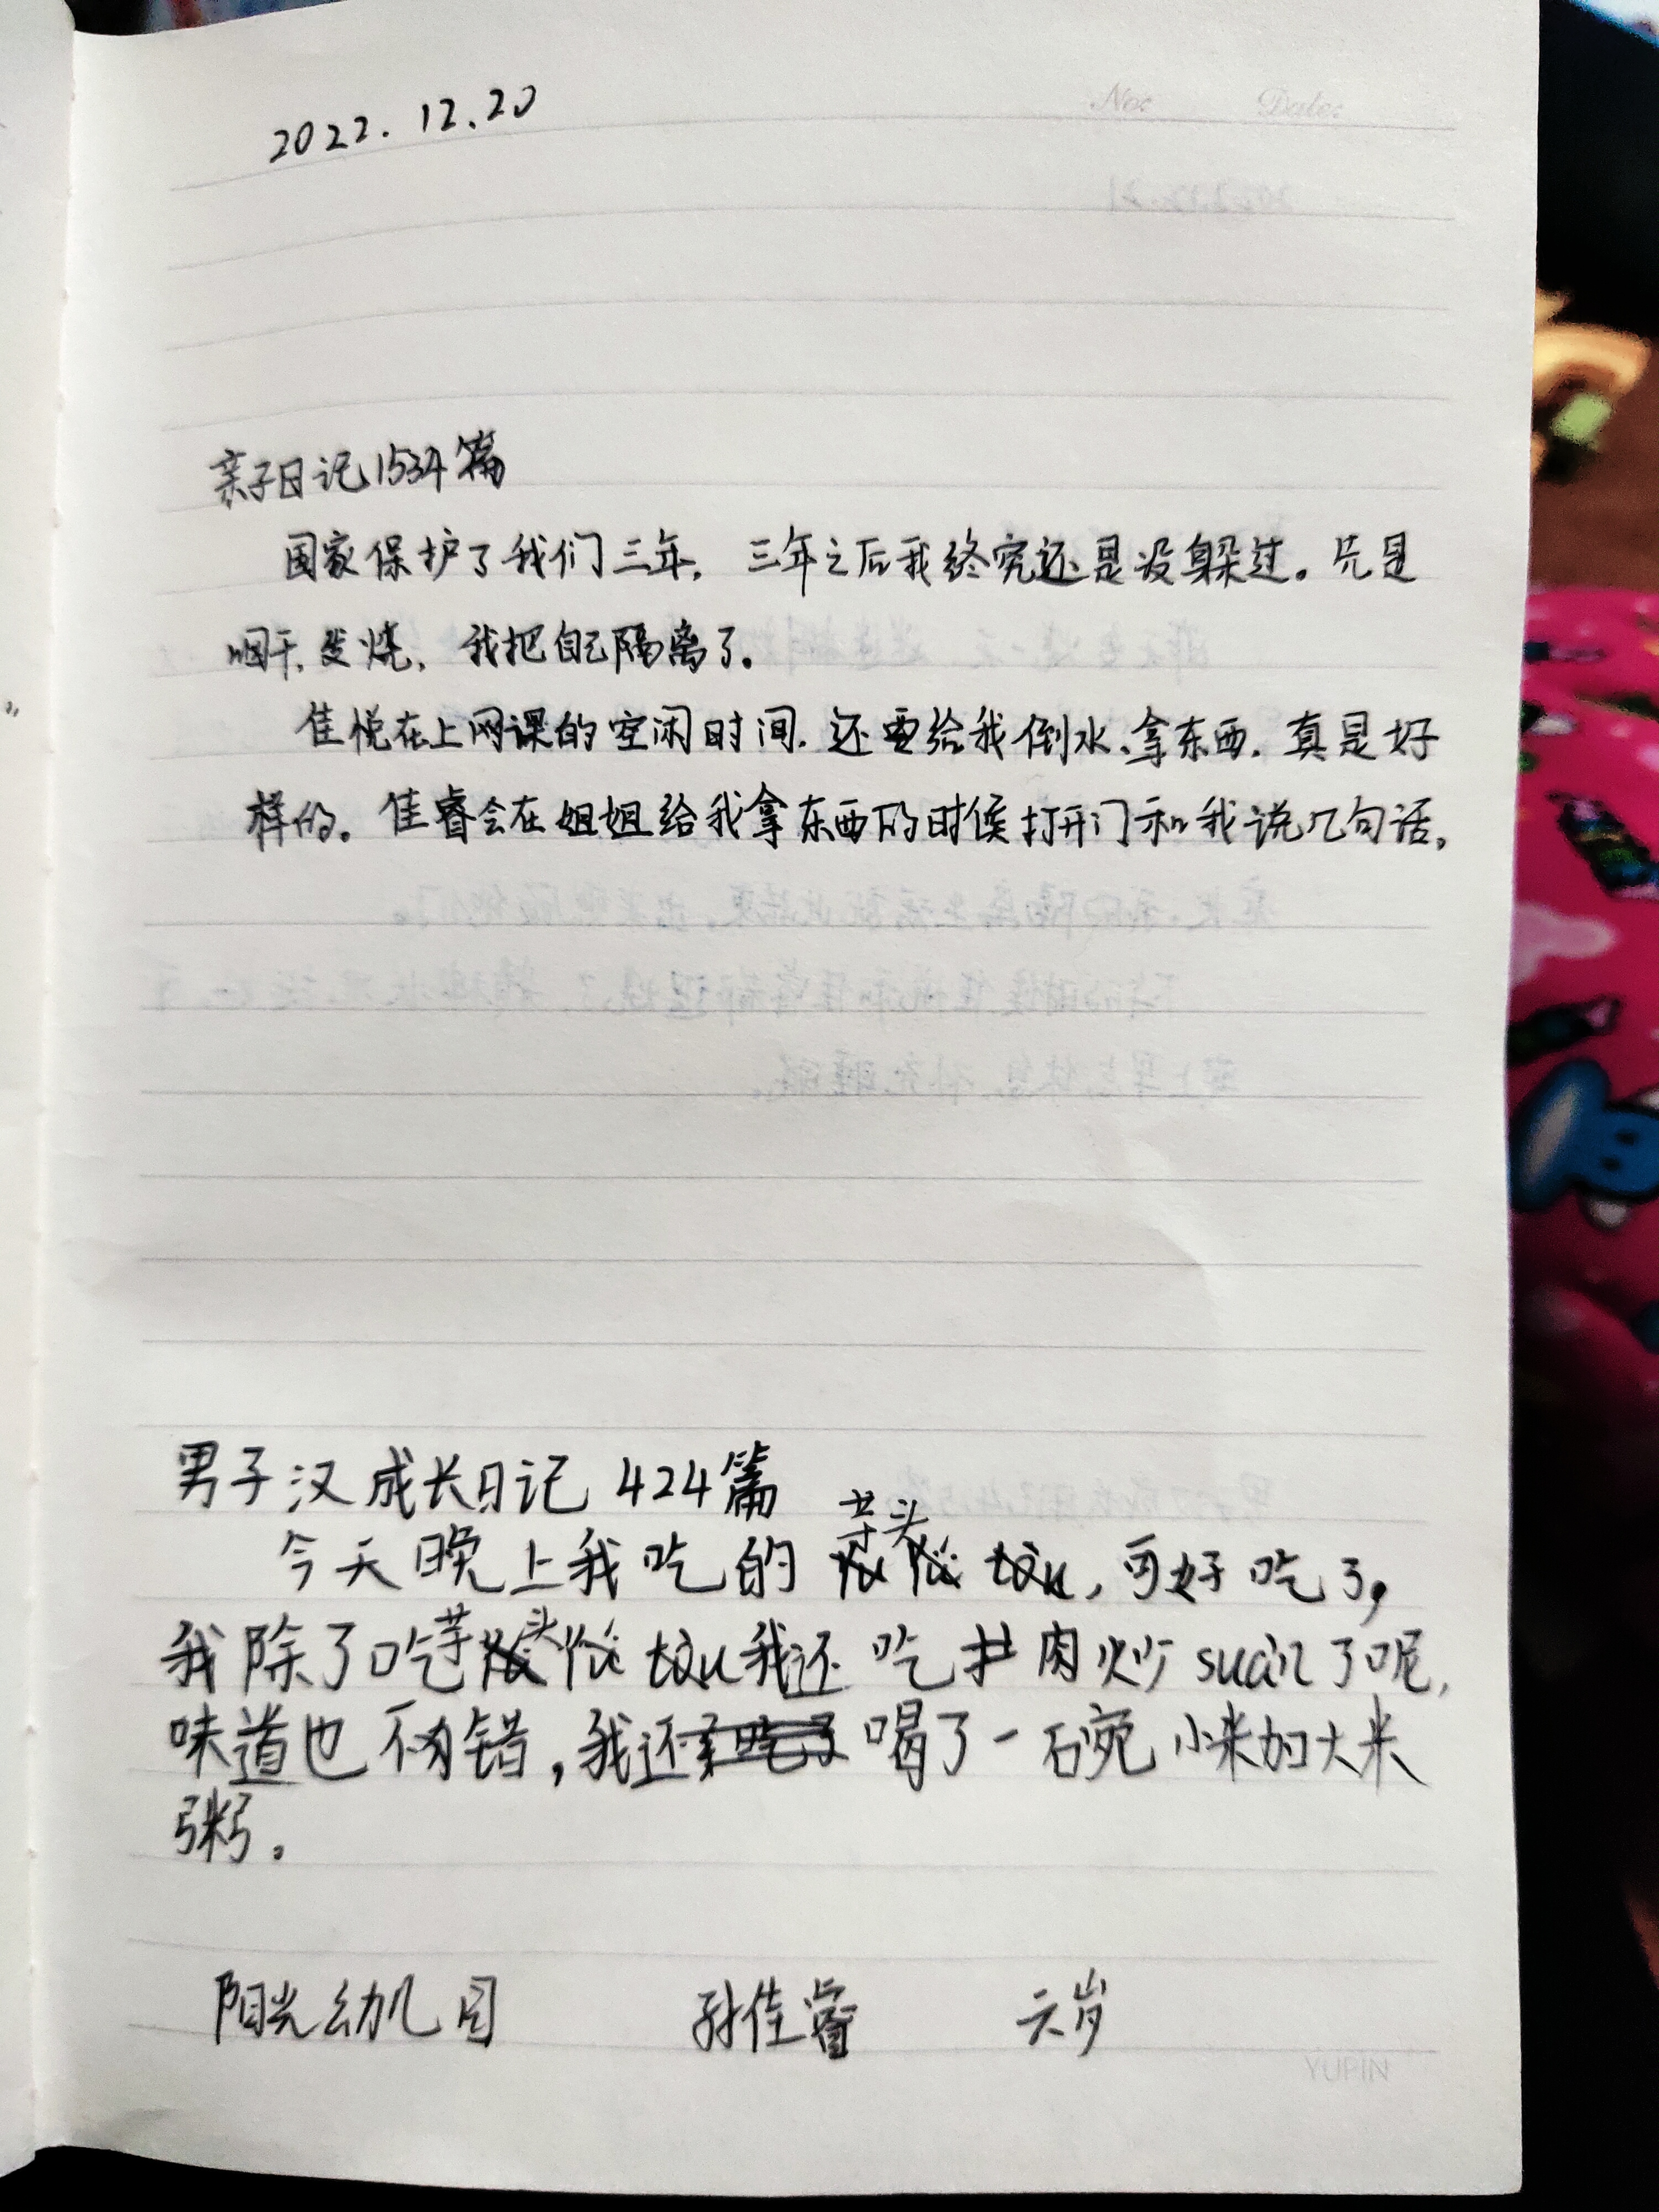 No: Date:
2022.12.20
亲子日记1534篇
国家保护了我们三年，三年之后我终究还是没躲过。先是
咽干，发烧，我把自己隔离了。
佳悦在上网课的空闲时间，还要给我倒水、拿东西，真是好
样的。佳睿会在姐姐给我拿东西的时候打开门和我说几句话。
男子汉成长日记 424篇
今天晚上我吃的芋头，可好吃了，
我除了吃芋头我还吃肉炒suan了呢，
味道也不错，我还喝了一碗小米加大米
粥。
阳光幼儿园 孙佳睿 六岁
YUPIN